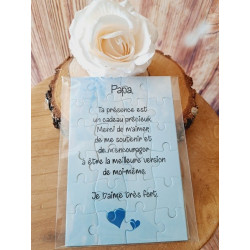 Papa,
Ta présence est
un cadeau précieux.
Merci de m'aimer,
de me soutenir et
de m'encourager
à être la meilleure version
de moi-même.
Je t'aime très fort.